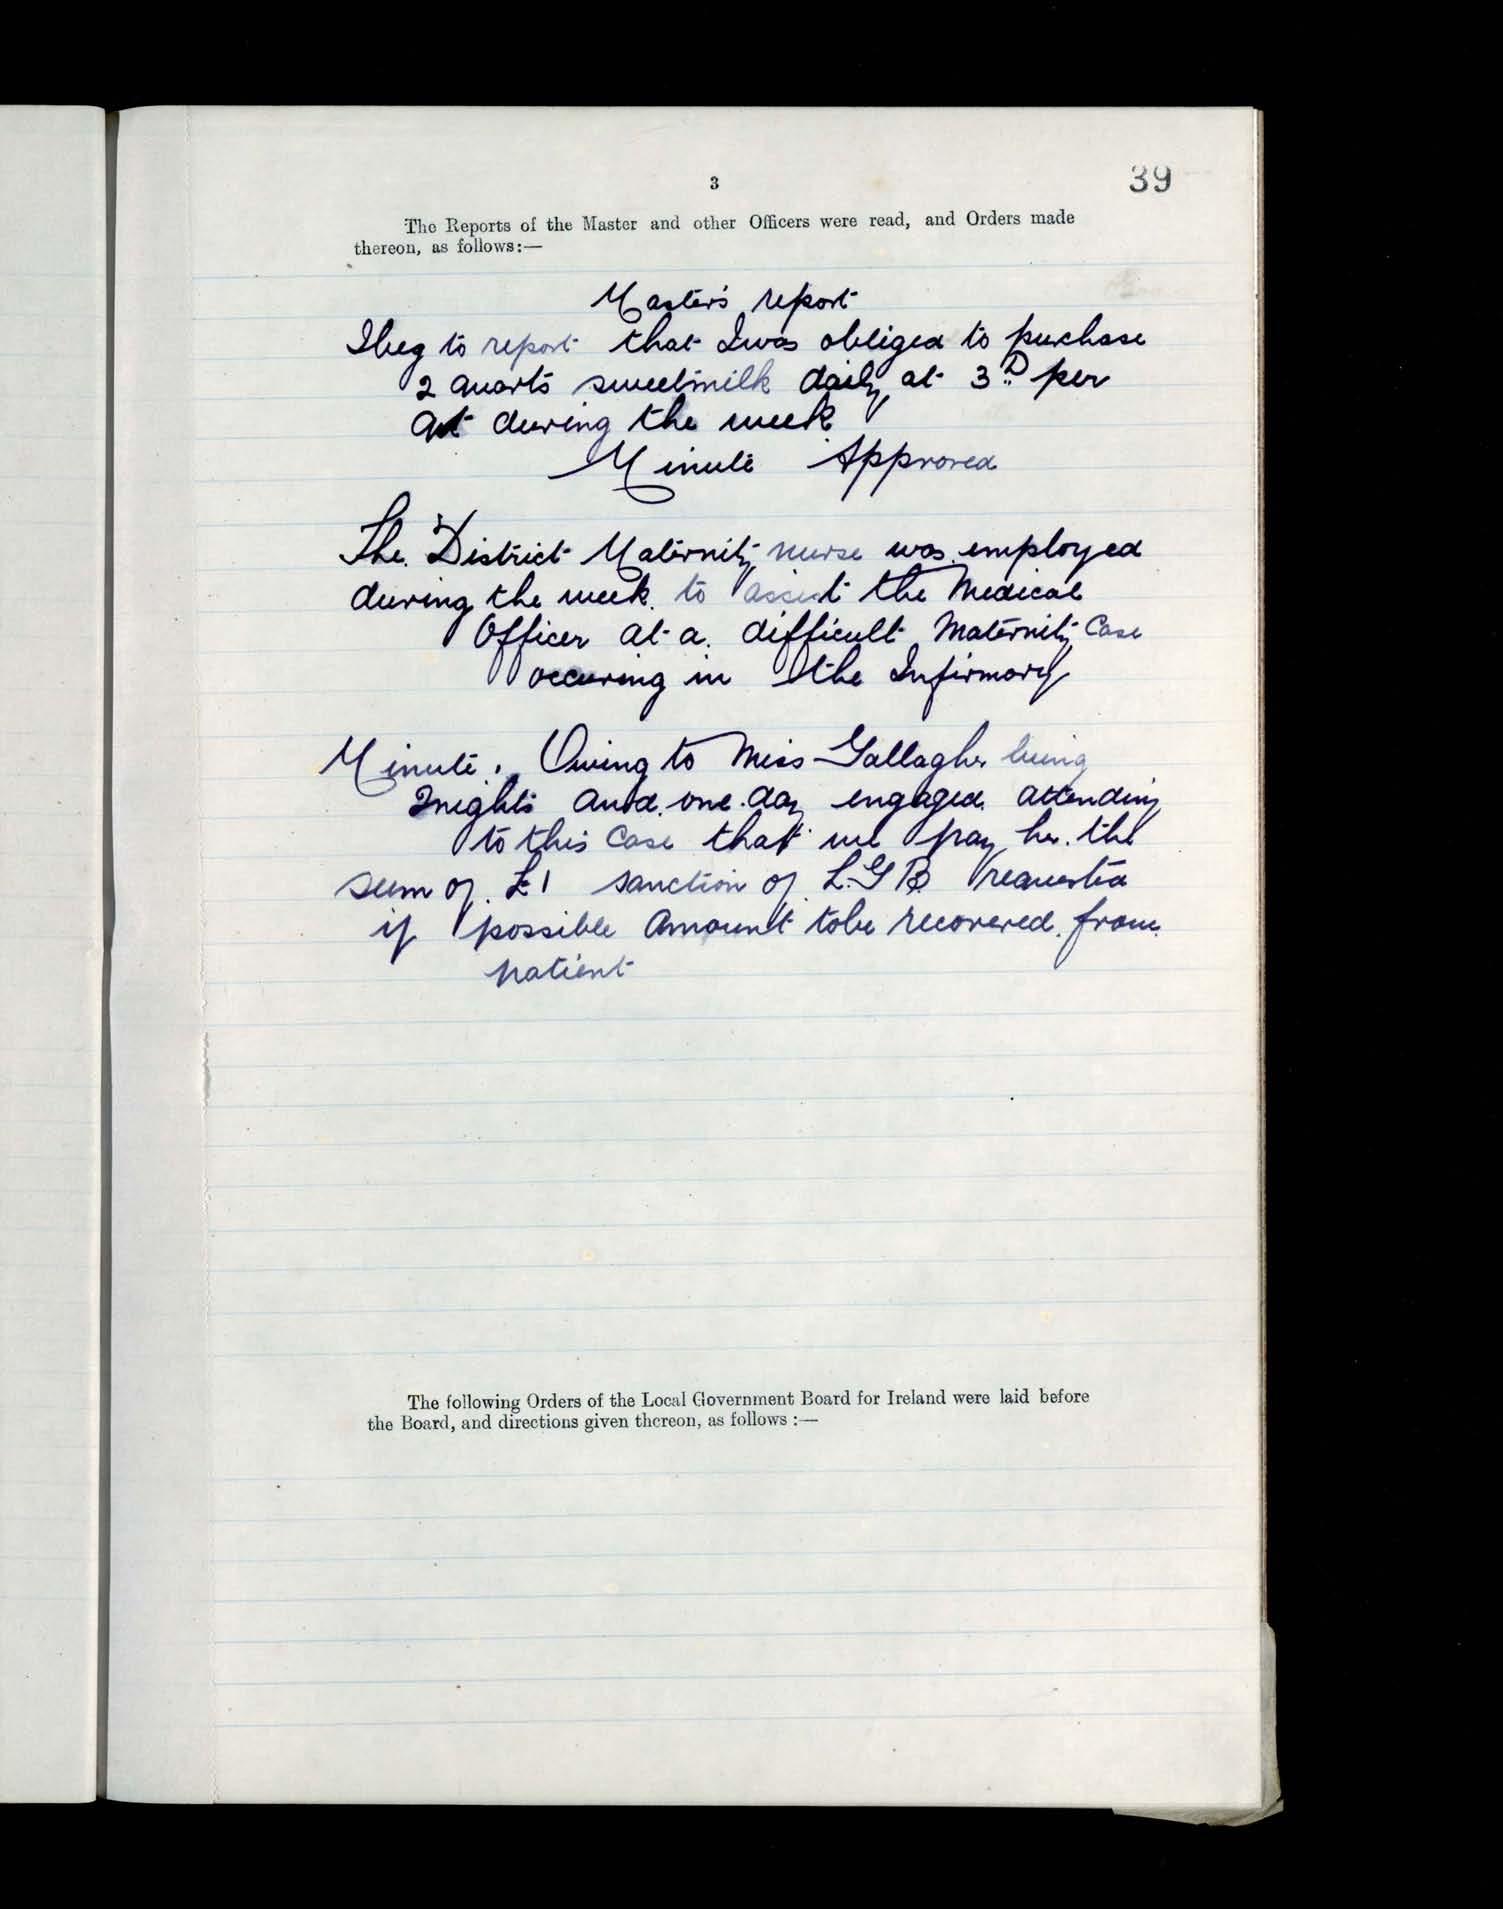 3
39
The Reports of the Master and other Officers were read, and Orders made
thereon, as follows:—
Master's report
I beg to report that I was obliged to purchase
2 quarts sweetmilk daily at 3D per
Qt during the week
Minute Approved
The District Maternity nurse was employed
during the week to assist the Medical
Officer at a difficult Maternity Case
occuring in the Infirmary
Minute. Owing to Miss Gallagher being
nights and one day engaged attending
to this Case that we pay her the
sum of £1 sanction of L.G B. requested
if possible Amount to be recovered from
patient
The following Orders of the Local Government Board for Ireland were laid before
the Board, and directions given thereon, as follows :—